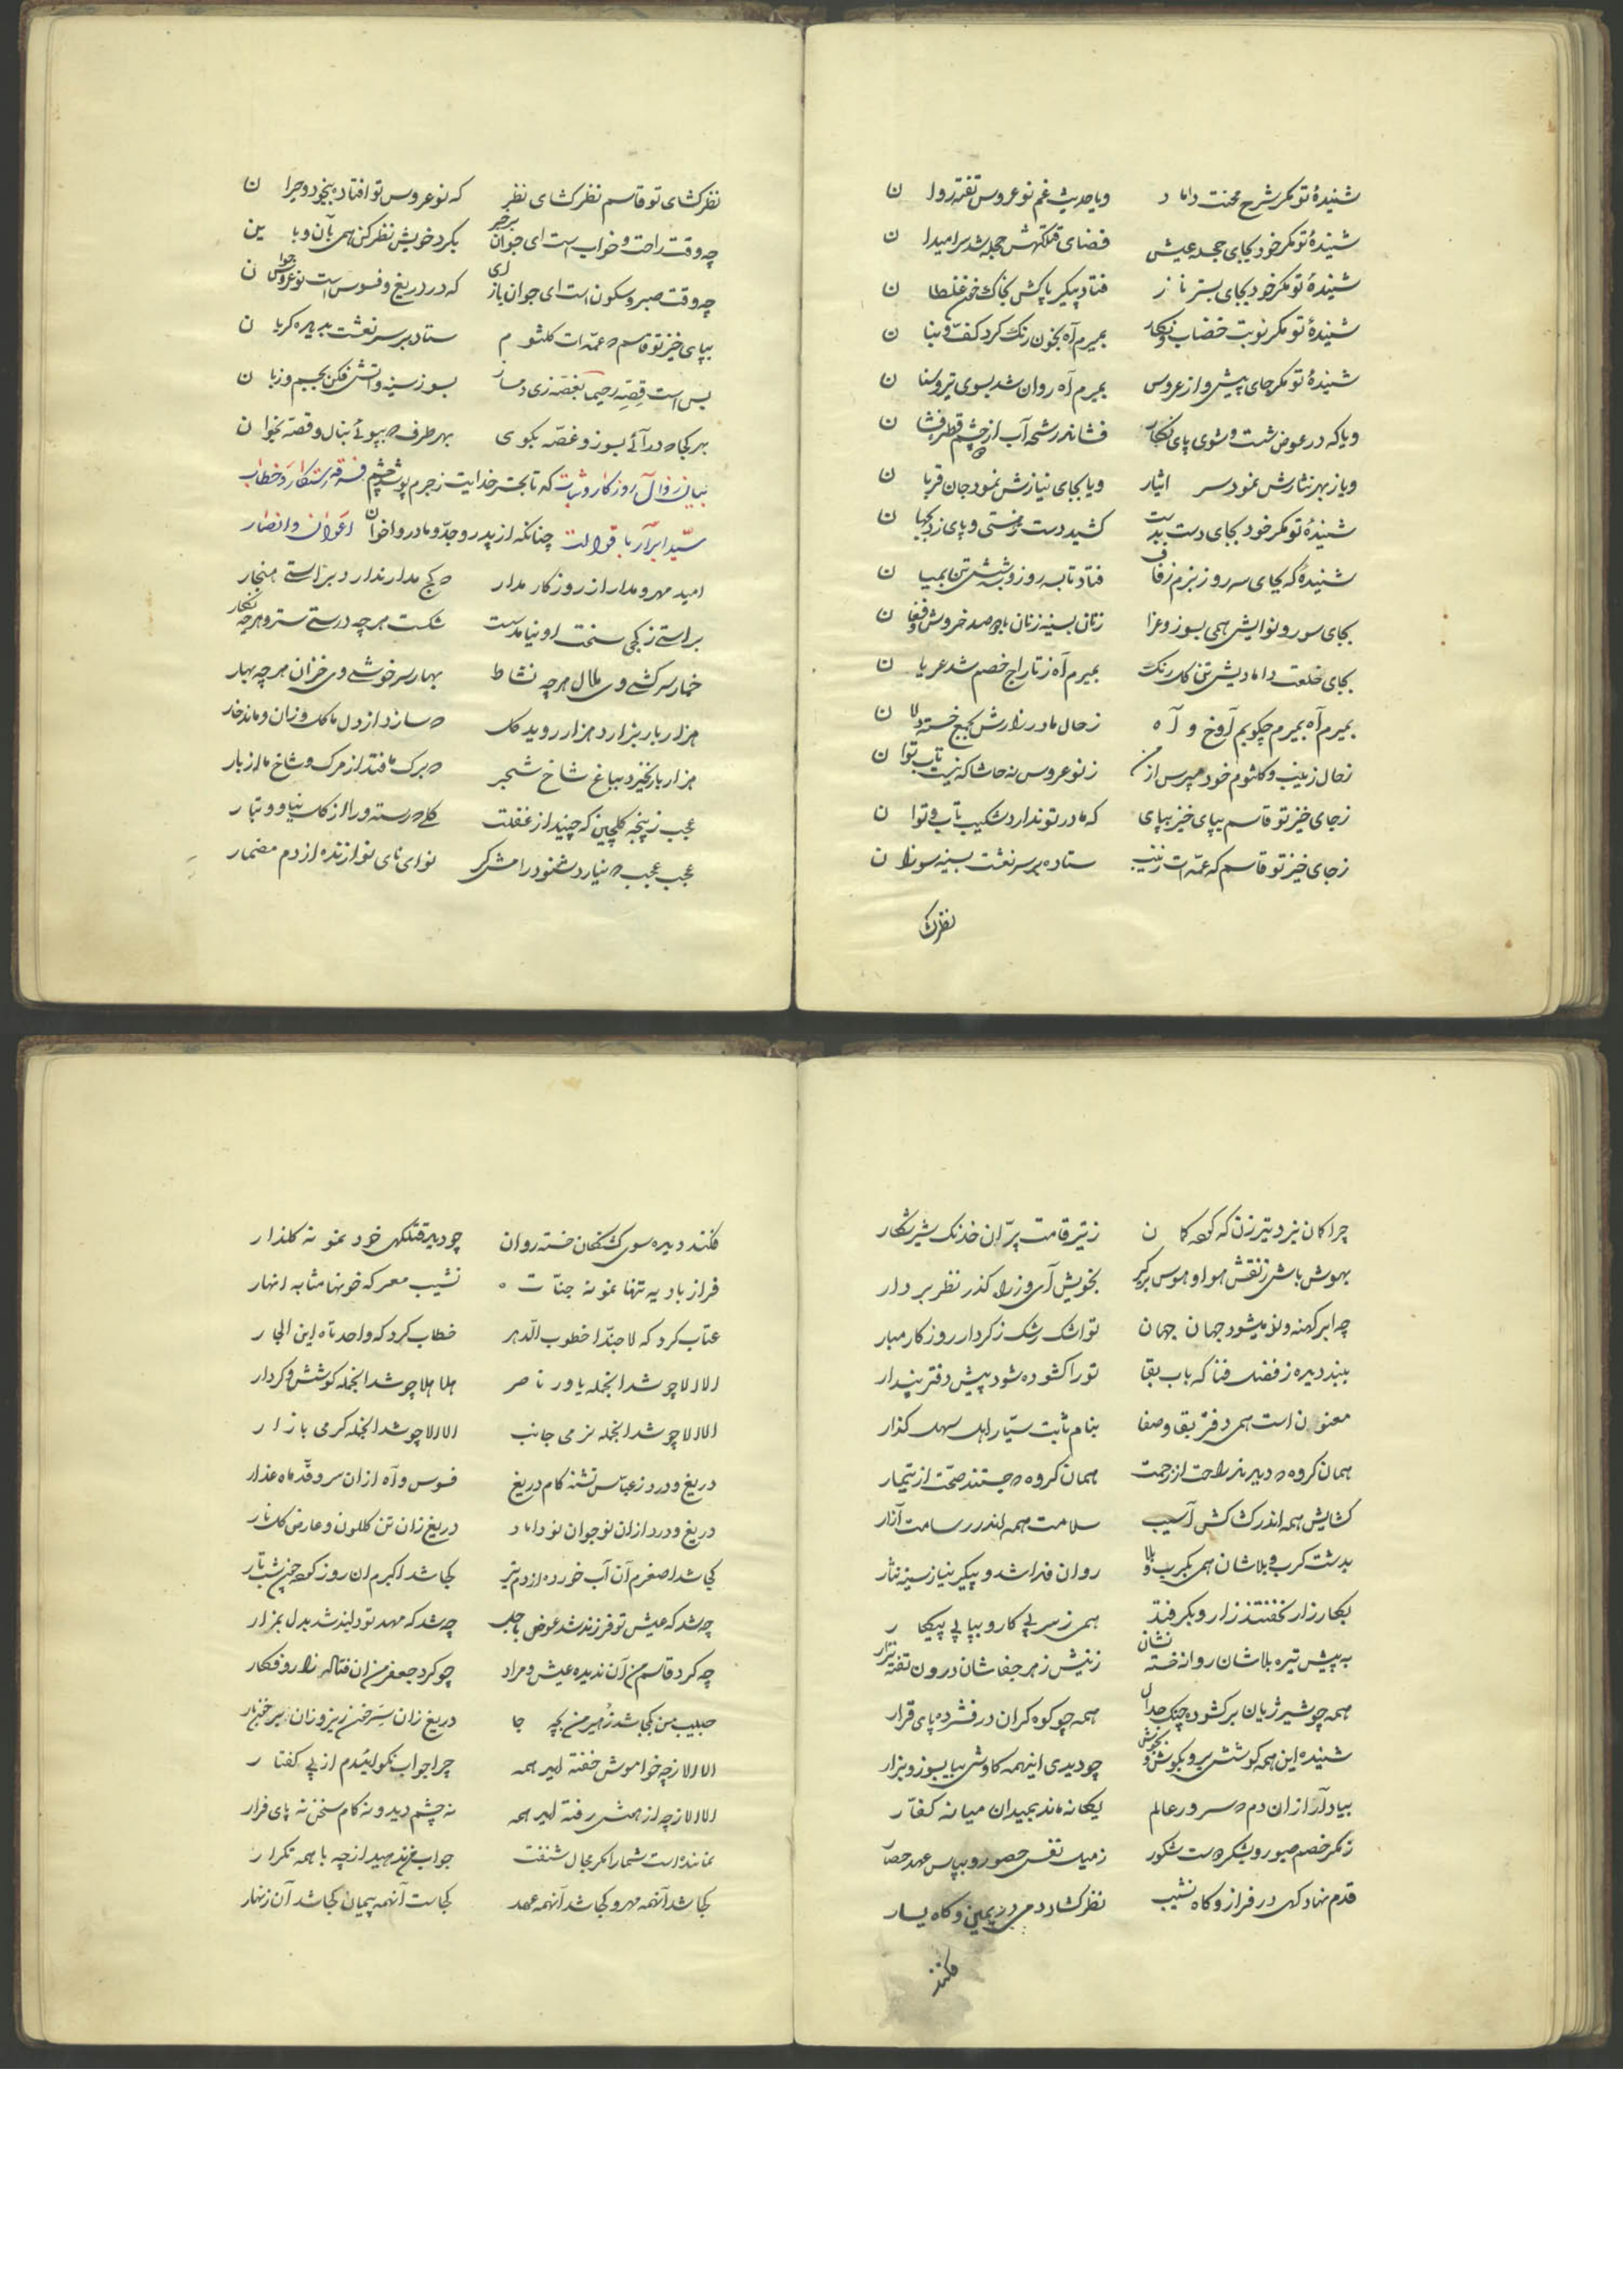 شنیدهٔ تو مگر شرح محنت داماد ویا حدیث غم نوعروس تفته روان
شنیدهٔ تو مگر خود بجای حجله عیش فضای قتلگهش حجله شد سرامیدان
شنیدهٔ تو مگر خود بجای بستر ناز فتاد پیکر پاکش بخاک خون غلطان
شنیدهٔ تو مگر نوبت خضاب و نگار بمیرم آه بخون رنگ کرد کفّ و بنان
شنیدهٔ تو مگر جای پیشواز عروس بمیرم آه روان شد بسوی تیر و سنان
ویا که در عوض شست وشوی پای نگار فشاند رشحه آب از چشم قطره فشان
ویا ز بهر نثارش نمود سر ایثار ویا بجای نیازش نمود جان قربان
شنیدهٔ تو مگر خود بجای دست بدست کشید دست ز هستی و پای زد بجهان
شنیدهٔ که بجای سه روز بزم زفاف فتاد تا به سه روز و سه شبش تن بمیان
بجای سور و نوایش همی بسوز و عزا زنان بسینه زنان با صد خروش و فغان
بجای خلعت دامادیش تن گلرنگ بمیرم آه ز تاراج خصم شد عریان
بمیرم آه بمیرم چگویم آوخ و آه ز حال مادر زارش بجمع خسته دلان
ز حال زینب و کلثوم خود مپرس از من ز نوعروس نه حاشا که نیست تاب توان
ز جای خیز تو قاسم بپای خیز بپای که مادر تو ندارد شکیب و تاب و توان
ز جای خیز تو قاسم که عمّه ات زینب ستاده بر سر نعشت بسینه سوزان
نظر کشای تو قاسم نظر کشای نظر که نوعروس تو افتاده بیخود و حیران
چه وقت راحت و خواب است ای جوان برخیز بگرد خویش نظر کن همی بآن و باین
چه وقت صبر و سکون است ای جوان بازآی که در دریغ و فسوس است نوعروس جوان
بپای خیز تو قاسم که عمّه ات کلثوم ستاده بر سر نعشت بدیده گریان
بس است قصّه رحیما بغصّه زی دمساز بسوز سینه و آتش فکن بجسم و زبان
بهر کجا که درآئی بسوز و غصّه بگوی بهر طرف که بپوئی بنال و قصّه بخوان
بیان زوال روزگار و ثبات که تا بحشر خدایت ز جرم پوشد چشم
سیّد ابرار با قوالت چنانکه از پدر و جدّ و مادر و اخوان اعوان و انصار
امید مهر و مدار از روزگار مدار که کج مدار ندارد براستی هنجار
براستی ز کجی سخت او نیامد سست شکست هر چه درستی سترد هر چه نگار
خمار سرکشی وی ملال هر چه نشاط بهار سرخوشی وی خزان هر چه بهار
هزار بار بزارد هزار روید گل که سازد از دل ما گل وزان و ماند خار
هزار بار بخیزد بباغ شاخ شجر که برگ ما فتد از مرگ و شاخ ما از بار
عجب ز پنجه گلچین که چیند از غفلت گلی که رسته ورا از گل نیا و تبار
عجب عجب که نیارد شنود رامشگر نوای نای نوازنده از دم مضمار
نظر ک
چرا کان نبرد تیر زن که که کان ز تیر قامت پرّان خدنگ شیر شکار
بهوش باش ز نقش هوا و هوس برگیر بخویش آی و زراه گذر نظر بردار
چه ابر کهنه و نو میشود جهان جهان تو اشک رشک ز کردار روزگار مبار
ببند دیده ز فضل فنا که باب بقا تو را کشوده شود پیش دفتر پندار
معنون است همی دفتر بقا و صفا بنام ثابت سیّار اهل سهل گذار
همان گروه که دیدند راحت از زحمت همان گروه که جستند صحّت از تیمار
کشایش همه اندر کشاکش آسیب سلامت همه اندر رسامت آزار
بدشت کرب و بلاشان همی بکرب و بلا روان فدا شد و پیکر نیاز سیر نثار
بکارزار نخفتند زار و بگرفتند همی ز سر پی کار و بپا پی پیکار
به پیش تیره بلاشان روان خسته نشان ز نیش زهر جفاشان درون تفته نزار
همه چو شیر ژیان برکشوده چنگ جدال همه چو کوه گران در فشرده پای قرار
شنیده این همه کوشش برو بکوش و بجوش چو دیدی اینهمه کاوش بیا بسوز و بزار
بیاد آر از ان دم که سرور عالم یگانه ماند بمیدان میانه کفّار
ز مکر خصم صبور و بشکر دست شکور
قدم نهاد گهی در فراز و گاه نشیب نظر کشاد دمی در یمین و گاه یسار
فکند
فکند دیده سوی کشتگان خسته روان چو دید قتلگهی خود نمونه گلزار
فراز بادیه تنها نمونه جنّات نشیب معرکه خونها مثابه انهار
عتاب کرد که لا حبّذا خطوب الدّهر خطاب کرد که واحدتاه این الجار
الا الا چو شد انجمله یاور ناصر هلا هلا چو شد انجمله کوشش و کردار
الا الا چو شد انجمله نرمی جانب الا الا چو شد انجمله گرمی بازار
دریغ و درد ز عبّاس تشنه کام دریغ فسوس و آه از ان سرو قدّ ماه عذار
دریغ و درد از ان نوجوان نو داماد دریغ زان تن گلگون و عارض گلنار
کجا شد اصغرم آن آب خورده از دم تیر کجا شد اکبرم ان روز کرده چون شب تار
چه شد که عیش تو فرزند شد عوض بعجل چه شد که مهد تو دلبند شد بدل بمزار
چه کرد قاسم من آن ندیده عیش و مراد چو کرد جعفر من ان فتاده زار و فکار
حبیب من بکجا شد زهیر من بچه جا دریغ زان سر خونریز و زان
الا الا ز چه خواموش خفته اید همه چرا جواب نگوئیدم از پی گفتار
الا الا ز چه از هش رفته اید همه نه چشم دید و نه کام سخن نه پای فرار
نمانده است شما را مگر مجال شنفت جواب من ندهید از چه با همه تکرار
کجا شد آنهمه مهر و کجا شد آنهمه عهد کجاست آنهمه پیمان کجا شد آن زنهار